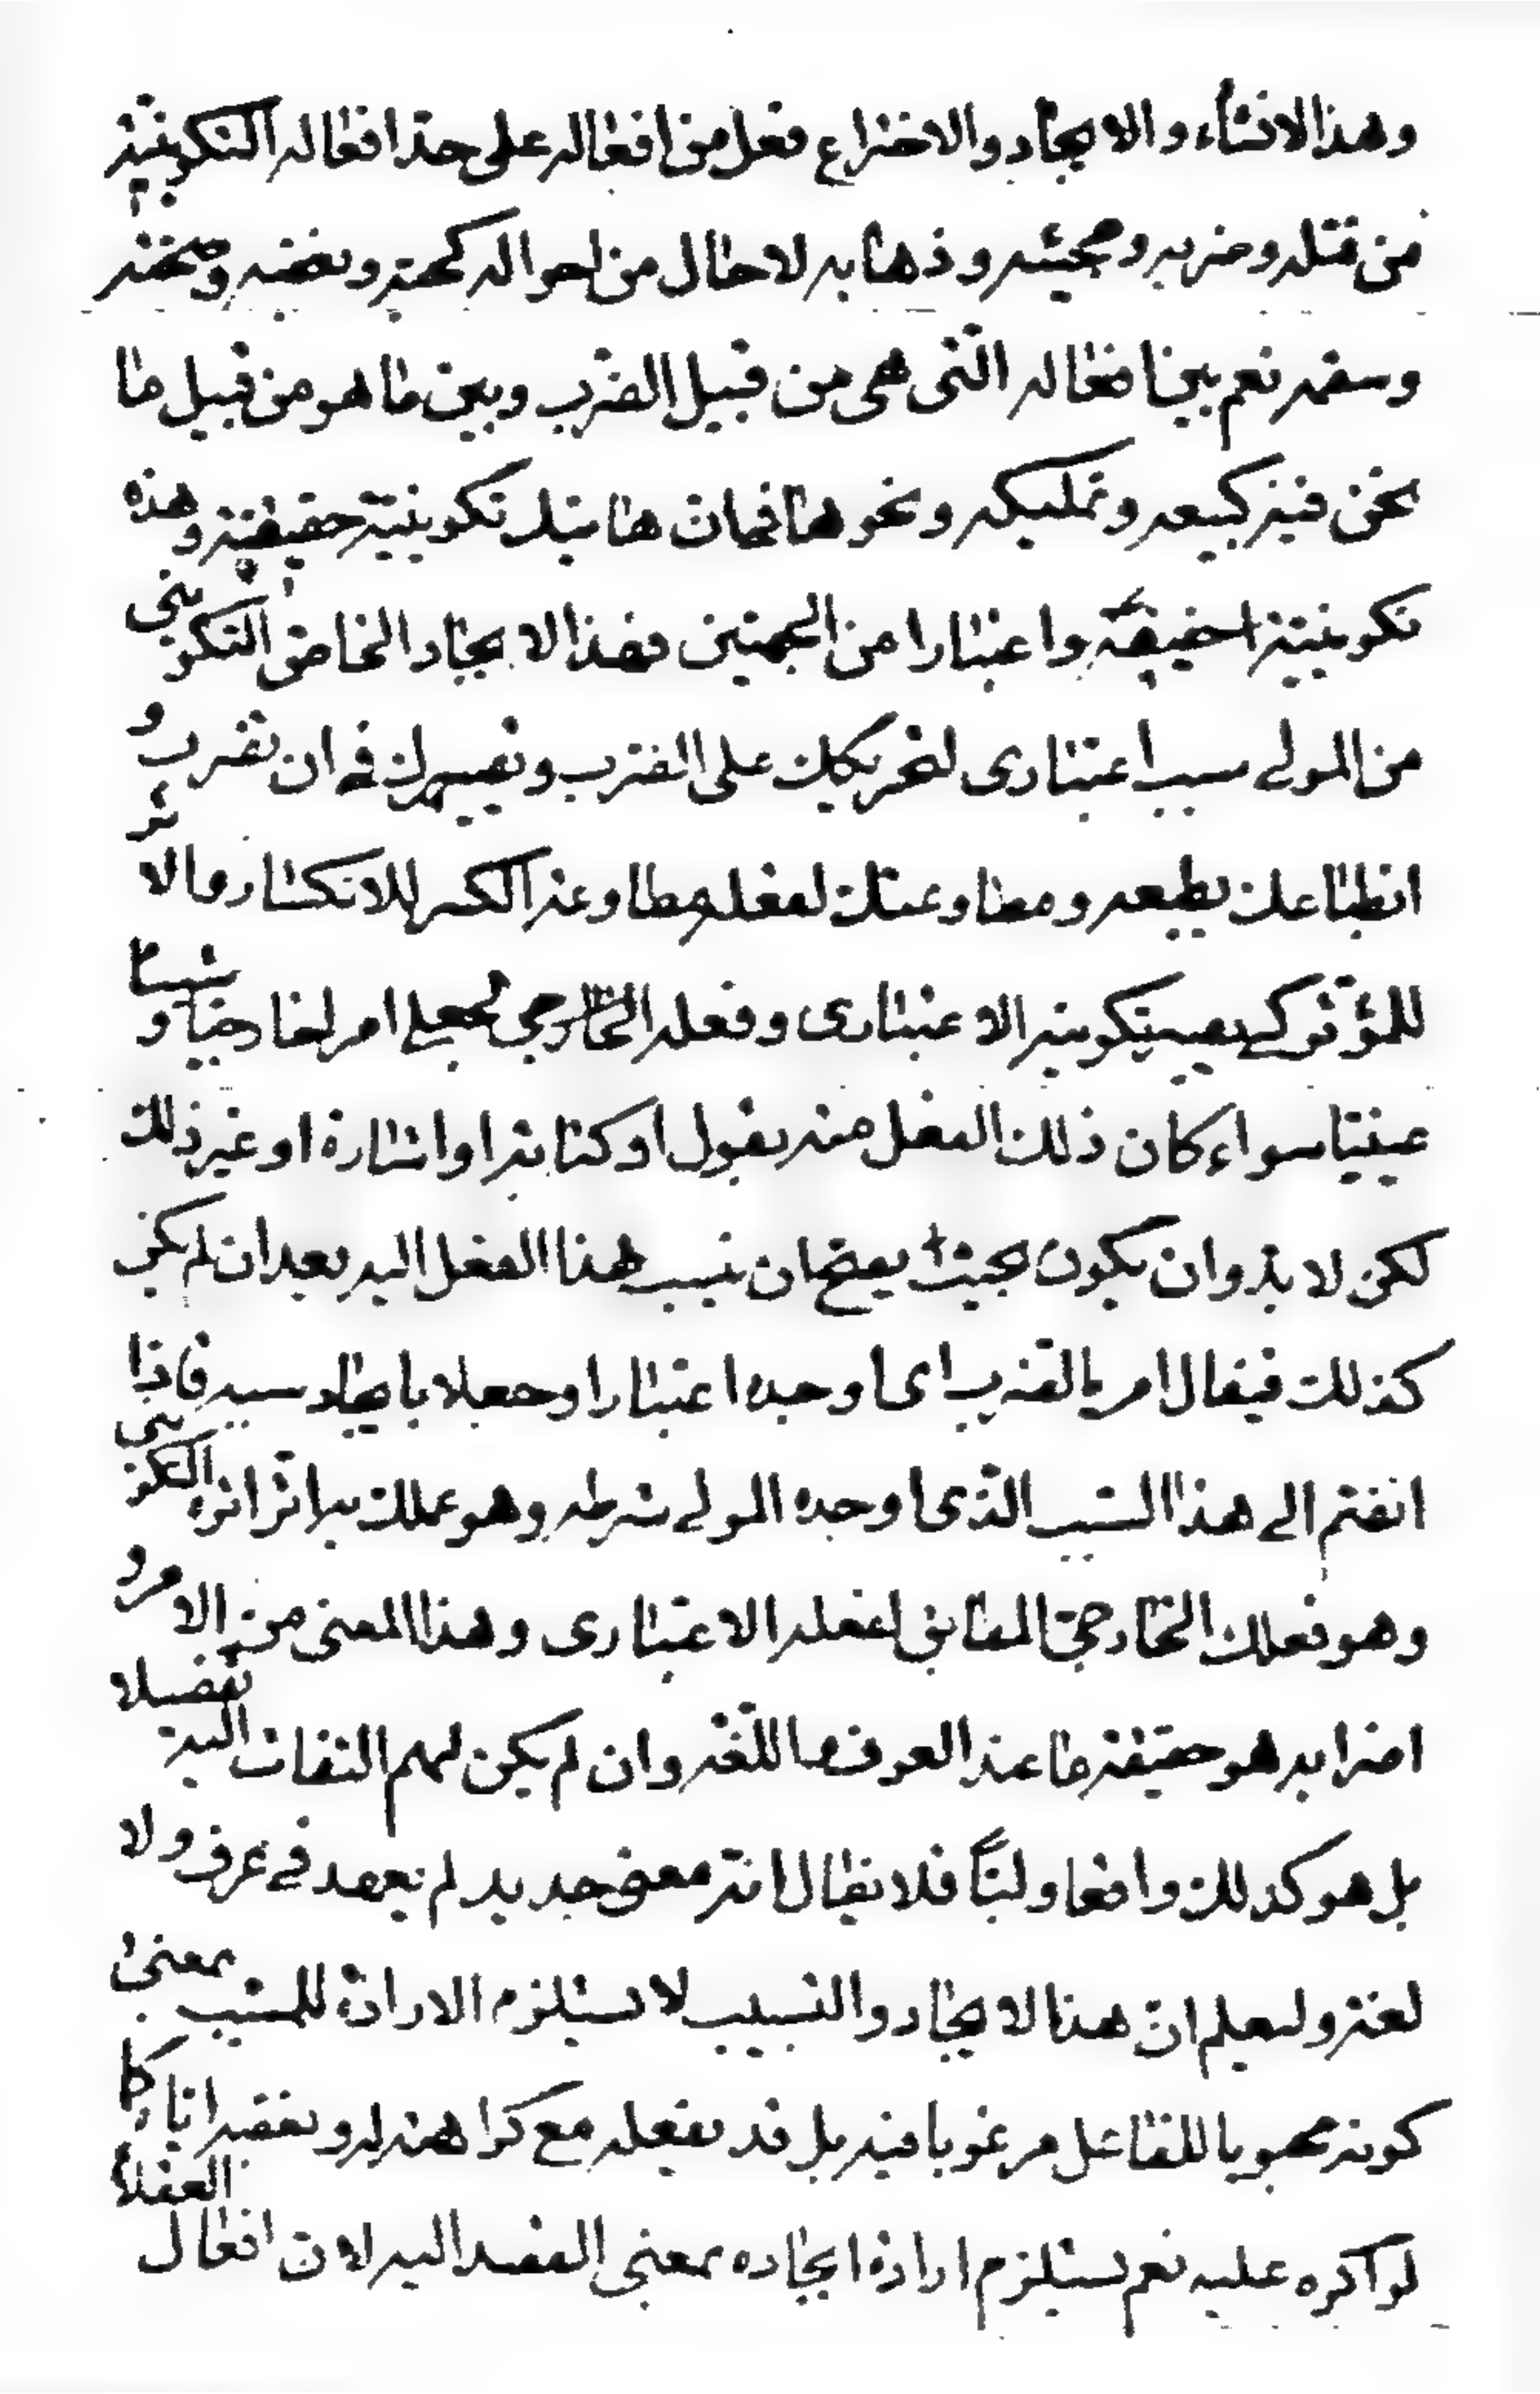 وهذا الانشاء والايجاد والاختراع فعل من افعاله على حد افعاله التكوينية
من قتله وضربه ومجيئه وذهابه لا حال من احواله كحمته وبغضه وصحته
وسقمه نعم بين افعاله التى هى من قبيل الضرب وبين ما هو من قبيل ما
نحن فيه كبيعه وتمليكه ونحوها فرق فان هاتيك تكوينية حقيقة وهذه
تكوينية حقيقة واعتبارا من الجهتين فهذا الايجاد الخاص التكوينى
من المولى سبب اعتبارى لتحريكك على الضرب وتصييرك فى ان تضرب و
انطباعك بطبعه ومطاوعتك لفعله مطاوعة الكسر للانكسار والاثر
للمؤثر كى يصير تكوينه الاعتبارى وفعله الخارجى الجعلى امرا خارجيا وشيئا
عينيا سواء كان ذلك الفعل منه بقول او كتابة او اشارة او غير ذلك
لكن لا بد وان يكون بحيث يصح ان ينسب هذا الفعل اليه بعد ان لم يكن
كذلك فيقال امر بالضرب اى اوجده اعتبارا وجعلا بايجاد سببه فاذا
انضم الى هذا السبب الذى اوجده المولى شرطه وهو عملك به اثر اثره التكوينى
وهو فعلك الخارجى المطابق لفعله الاعتبارى وهذا المعنى من الامر و
اضرابه هو حقيقة ما عند العرف واللغة وان لم يكن لهم التفات اليه تفصيلا
بل هو كذلك واقعا ولبا فلا يقال انه معنى جديد لم يعهد فى عرف ولا
لغة وليعلم ان هذا الايجاد والتسبيب لا يستلزم الارادة للمسبب بمعنى
كونه محبوبا للفاعل مرغوبا فيه بل قد يفعله مع كراهته له وبغضه اياه كما
لو اكره عليه نعم يستلزم ارادة ايجاده بمعنى القصد اليه لان افعال العقلاء